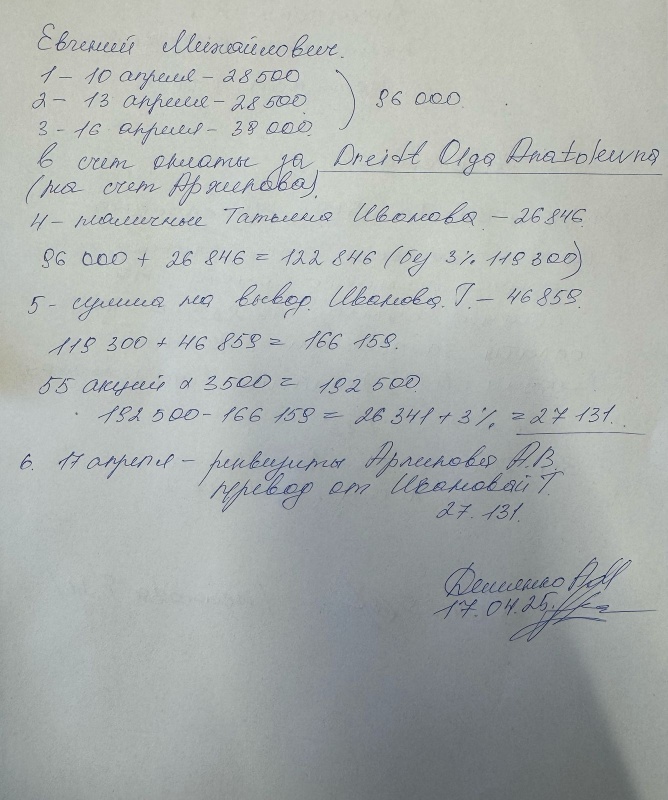 Евгений Михайлович.
1 - 10 апреля - 28500
2 - 13 апреля - 28500
3 - 16 апреля - 39 000
96 000
в счет оплаты за Dneidt Olga Anatolewna
(на счет Архипова)
4 - наличные Татьяна Иванова - 26846
96 000 + 26 846 = 122 846 (бу 3% 119 300)
5 - сумма на вывод Иванова Т. - 46 859.
119 300 + 46 859 = 166 159.
55 акций х 3500 = 192 500
192 500 - 166 159 = 26 341 + 3% = 27 131.
6. 17 апреля - реквизиты Архипова А.В
перевод от Ивановой Т.
27. 131.
17.04.25.